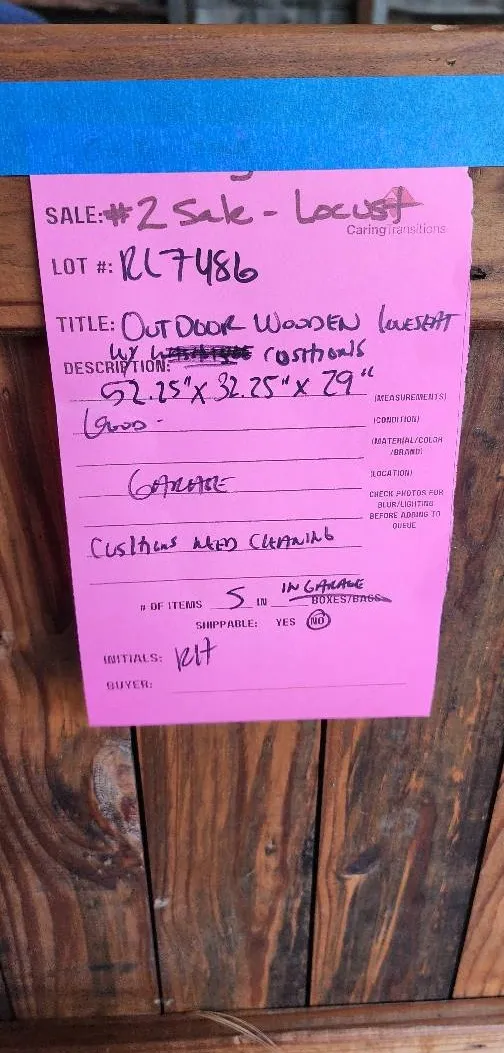 SALE: #2 Sale - Locust
CaringTransitions
LOT #: RL7486
TITLE: OUTDOOR WOODEN LOVESEAT
W/ CUSHIONS
DESCRIPTION:
52.25" X 32.25" X 29"
(MEASUREMENTS)
GOOD -
(CONDITION)
(MATERIAL/COLOR
/BRAND)
GARAGE
(LOCATION)
CHECK PHOTOS FOR
BLUR/LIGHTING
BEFORE ADDING TO
QUEUE
CUSHIONS NEED CLEANING
# OF ITEMS 5 IN IN GARAGE
BOXES/BAGS
SHIPPABLE: YES NO
INITIALS: RH
BUYER: